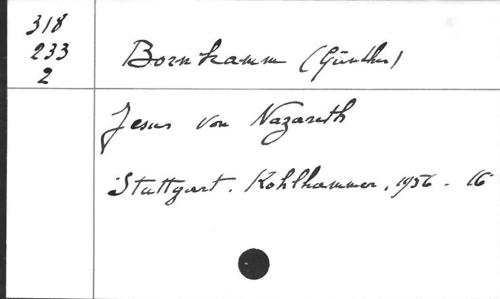 318
233
2
Bornkamm (Günther)
Jesus von Nazareth
Stuttgart. Kohlhammer, 1956 - 16°